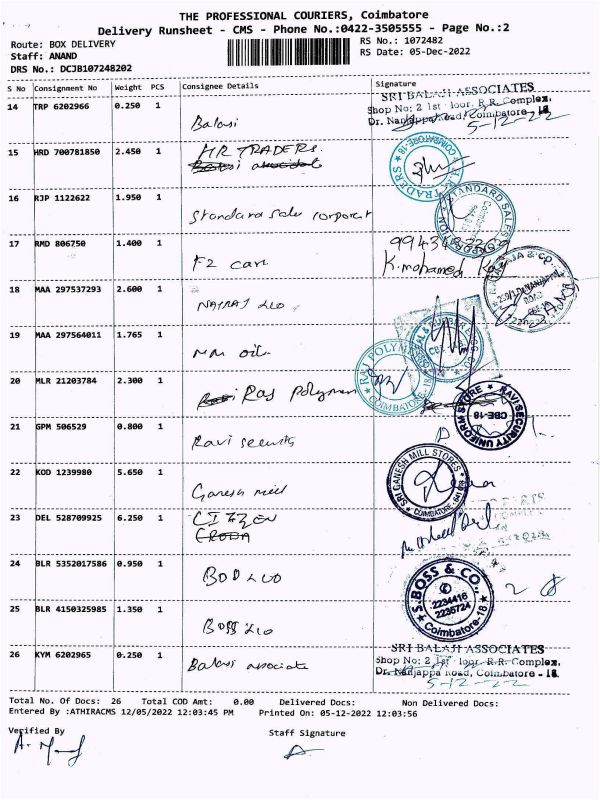 THE PROFESSIONAL COURIERS, Coimbatore
Delivery Runsheet - CMS - Phone No.:0422-3505555 - Page No.:2
Route: BOX DELIVERY
RS No.: 1072482
Staff: ANAND
RS Date: 05-Dec-2022
DRS No.: DCJB107248202
S No Consignment No Weight PCS Consignee Details Signature
14 TRP 6202966 0.250 1
SRI BALAJI ASSOCIATES
Shop No: 2 1st Floor, R.R. Complex,
Dr. Nanjappa Road, Coimbatore - 18
5-12-22
15 HRD 700781850 2.450 1 HR TRADERS
COIMBATORE-18
16 RJP 1122622 1.950 1 Standard Sales corporat
STANDARD SALES
17 RMD 806750 1.400 1 F2 care
K.mohamed
18 MAA 297537293 2.600 1
19 MAA 297564011 1.765 1 MM oil
20 MLR 21203784 2.300 1 Raj polymer
RAJ POLYM
COIMBATORE-18
21 GPM 506529 0.800 1 Ravi security
RAVI SECURITY UNIFORM STORE
CBE-18
22 KOD 1239980 5.650 1 Ganesh mill
SRI GANESH MILL STORES
23 DEL 528709925 6.250 1
24 BLR 5352017586 0.950 1
S.BOSS & CO.,
2234416
2235724
Coimbatore-18
25 BLR 4150325985 1.350 1
26 KYM 6202965 0.250 1 Balaji associate
SRI BALAJI ASSOCIATES
Shop No: 2 1st Floor, R.R. Complex,
Dr. Nanjappa Road, Coimbatore - 18
5-12-22
Total No. Of Docs: 26 Total COD Amt: 0.00 Delivered Docs: Non Delivered Docs:
Entered By :ATHIRACMS 12/05/2022 12:03:45 PM Printed On: 05-12-2022 12:03:56
Verified By
Staff Signature